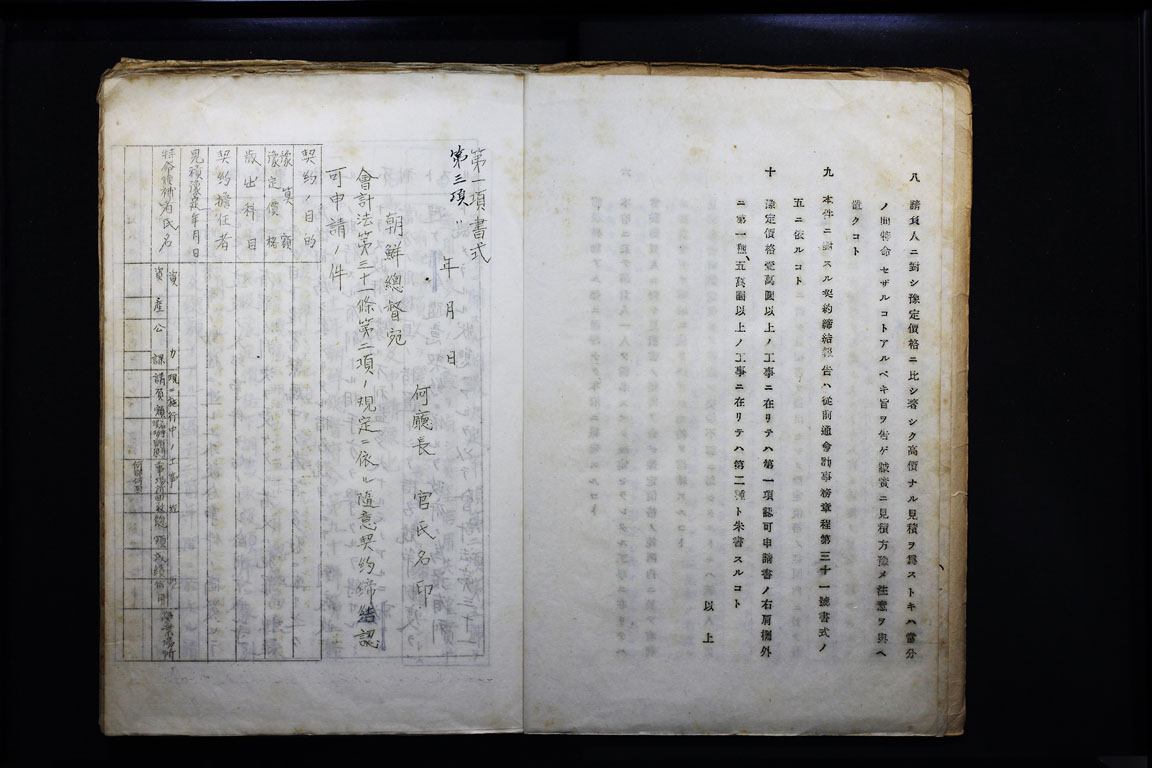 八　請負人ニ對シ豫定價格ニ比シ著シク高價ナル見積ヲ爲ストキハ當分
ノ間特命セザルコトアルベキ旨ヲ告ゲ誠實ニ見積方豫メ注意ヲ與ヘ
置クコト
九　本件ニ對スル契約締結報告ハ從前通會計事務章程第三十一號書式ノ
五ニ依ルコト
十　豫定價格壹萬圓以上ノ工事ニ在リテハ第一項認可申請書ノ右肩欄外
ニ第一種、五萬圓以上ノ工事ニ在リテハ第二種ト朱書スルコト
以上
第一項書式
第三項〃
年　月　日
何廳長　官氏名印
朝鮮總督宛
會計法第三十一條第二項ノ規定ニ依ル隨意契約締結認
可申請ノ件
契約ノ目的
豫算額
豫定價格
歳出科目
契約擔任者
見積豫定年月日
特命請負者氏名
資力
現ニ施行中ノ工事
資産
公課
請負額
總額
成績